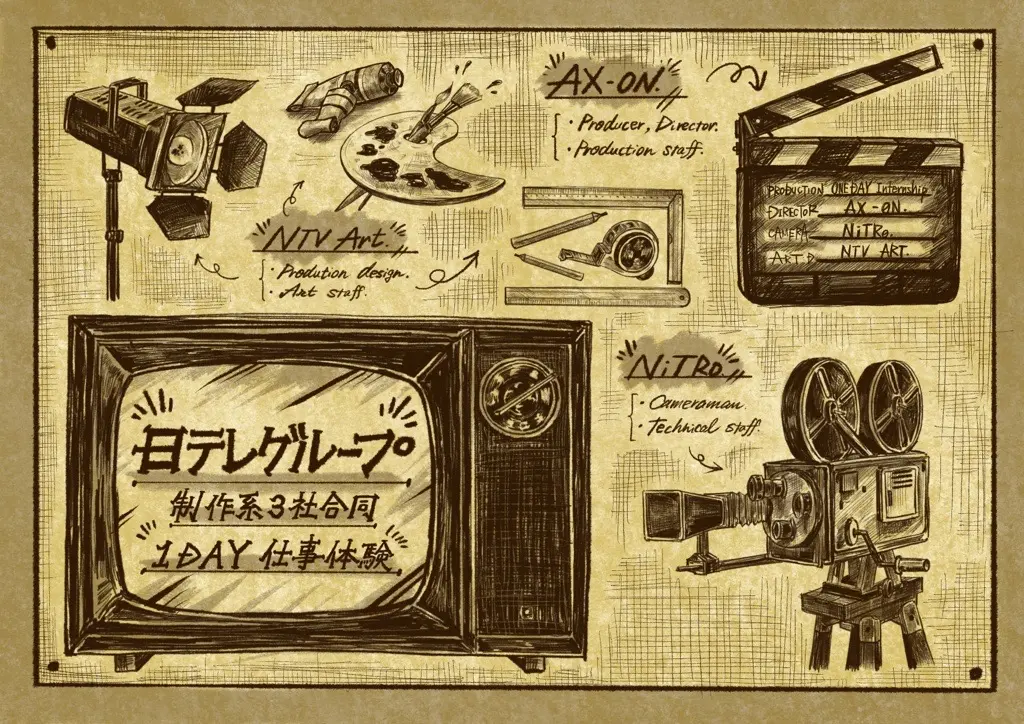 AX-ON.
・Producer, Director.
・Production staff.
PRODUCTION ONEDAY Internship
DIRECTOR AX-ON.
CAMERA NiTRo.
ART.D NTV ART.
NTV Art.
・Prodution design.
・Art staff.
NiTRo.
・Cameraman.
・Technical staff.
日テレグループ
制作系3社合同
1DAY 仕事体験